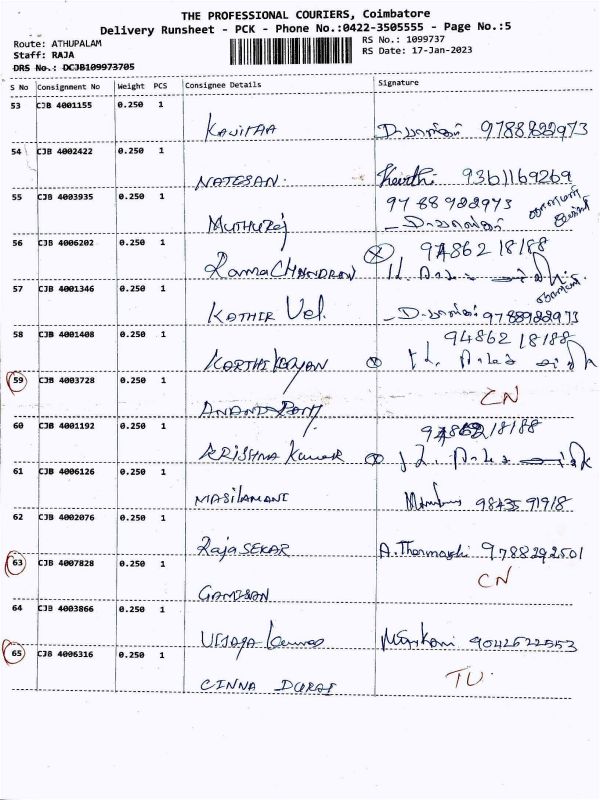 THE PROFESSIONAL COURIERS, Coimbatore
Delivery Runsheet - PCK - Phone No.:0422-3505555 - Page No.:5
Route: ATHUPALAM RS No.: 1099737
Staff: RAJA RS Date: 17-Jan-2023
DRS No.: DCJB109973705
S No Consignment No Weight PCS Consignee Details Signature
53 CJB 4001155 0.250 1
KAVITAA 9788922973
54 CJB 4002422 0.250 1
NATESAN. Keerthi 9361169269
55 CJB 4003935 0.250 1 9788922973
MUTHURaj
56 CJB 4006202 0.250 1 9486218188
Rama CHANDRAN
57 CJB 4001346 0.250 1
KATHIR Vel. 9788922973
58 CJB 4001408 0.250 1 9486218188
KARTHIKeyan
59 CJB 4003728 0.250 1 CN
60 CJB 4001192 0.250 1
KRISHNA Kumar
61 CJB 4006126 0.250 1
MASILAMANI 9843591918
62 CJB 4002076 0.250 1
Raja SEKAR 9788292501
63 CJB 4007828 0.250 1 CN
GANESAN
64 CJB 4003866 0.250 1
VIJAYA Kumar 9042622553
65 CJB 4006316 0.250 1 TU.
CINNA DURAI